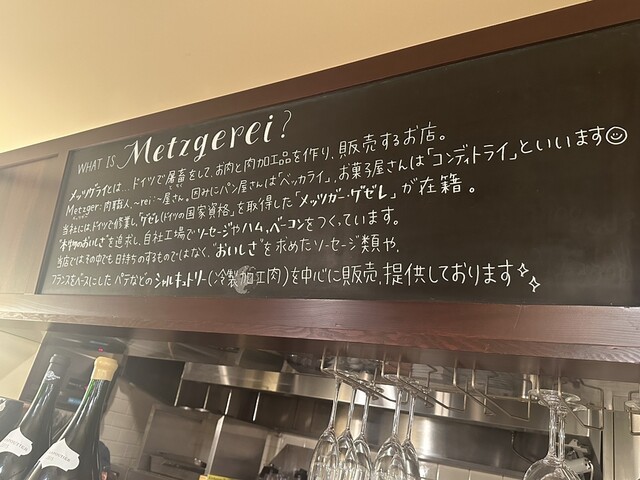 WHAT IS Metzgerei?
メッツゲライとは…ドイツで屠畜をして、お肉と肉加工品を作り、販売するお店。
Metzger:肉職人、〜rei:〜屋さん。因みにパン屋さんは「ベッカライ」、お菓子屋さんは「コンディトライ」といいます☺
当社には、ドイツで修業し、ゲゼレ(ドイツの国家資格)を取得した「メッツガー・ゲゼレ」が在籍。
"本物のおいしさ"を追求し、自社工場でソーセージやハム、ベーコンをつくっています。
当店では、その中でも日持ちのするものではなく、"おいしさ"を求めたソーセージ類や、
フランスをベースにしたパテなどのシャルキュトリー(冷製加工肉)を中心に販売、提供しております